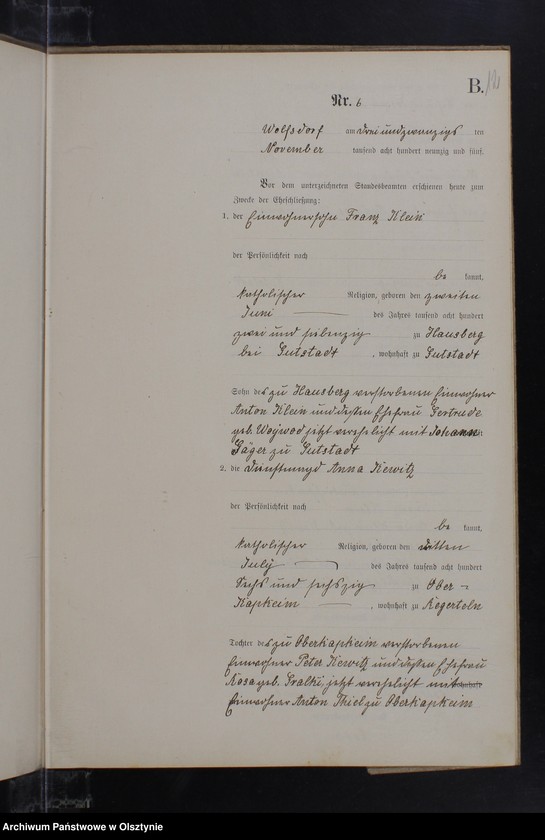 B.
Nr. 6
Wolfsdorf am drei und zwanzigs ten
November tausend acht hundert neunzig und fünf.
Vor dem unterzeichneten Standesbeamten erschienen heute zum
Zwecke der Eheschließung:
1. der Einwohnersohn Franz Klein
der Persönlichkeit nach
be kannt,
katholischer Religion, geboren den zweiten
Juni des Jahres tausend acht hundert
zwei und siebenzig zu Hausberg
bei Gutstadt, wohnhaft zu Gutstadt
Sohn des zu Hausberg verstorbenen Einwohner
Anton Klein und dessen Ehefrau Gertrude
geb. Woywod jetzt verehelicht mit Johann
Jäger zu Gutstadt
2. die Dienstmagd Anna Kewitz
der Persönlichkeit nach
be kannt,
katholischer Religion, geboren den dritten
July des Jahres tausend acht hundert
sechs und sechszig zu Ober-
Kapkeim, wohnhaft zu Regerteln
Tochter des zu Oberkapkeim verstorbenen
Einwohner Peter Kewitz und dessen Ehefrau
Rosa geb. Gralki, jetzt verehelicht mit
Einwohner Anton Thiel zu Oberkapkeim
Archiwum Państwowe w Olsztynie